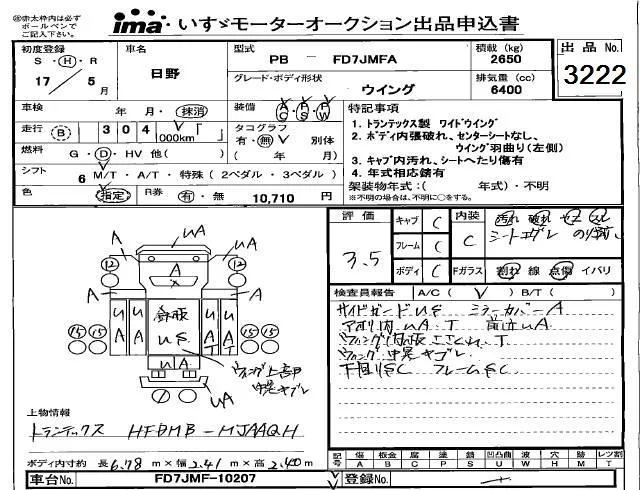 ㊟赤太枠内は必ず
ボールペンで
ご記入下さい。
ima・いすゞモーターオークション出品申込書
初度登録
S・H・R
17 / 5月
車名
日野
型式
PB － FD7JMFA
グレード・ボディ形状
ウイング
積載 (kg)
2650
排気量 (cc)
6400
出品 No.
3222
車検 年 月・抹消
装備 A/C P/S P/W
走行 B 304 000km
タコグラフ
有・無 別体
( 年 月)
燃料 G・D・HV 他( )
シフト 6 M/T・A/T・特殊(2ペダル・3ペダル)
色 指定 R券 有・無 10,710 円
特記事項
1．トランテックス製 ワイドウイング
2．ボディ内張破れ、センターシートなし、
ウイング羽曲り(左側)
3．キャブ内汚れ、シートへたり傷有
4．年式相応錆有
架装物年式：( 年式)・不明
※不明の場合は、不明に○をする。
評価
3.5
キャブ C
フレーム C
ボディ C
内装 C
汚れ 破れ
シート
Fガラス 割れ 線 点傷 イバリ
検査員報告 A/C ( ) B/T ( )
サイドガード US ミラーカバーA
アオリ内UA.T 前立UA
下回りSC フレームSC
A UA A
12 12
A
X
UA UA UA UA
US
15 15 15 15
UA
UA
上物情報
トランテックス HFDMB-MJAAQH
ボディ内寸約 長 6.78 m×幅 2.41 m×高 2.40 m
記号 傷 A 板金 B 腐 C 塗 P 錆 S 凹凸曲 U 波 W 穴 H 跡 M レンズ割 T
車台No. FD7JMF-10207
登録No.